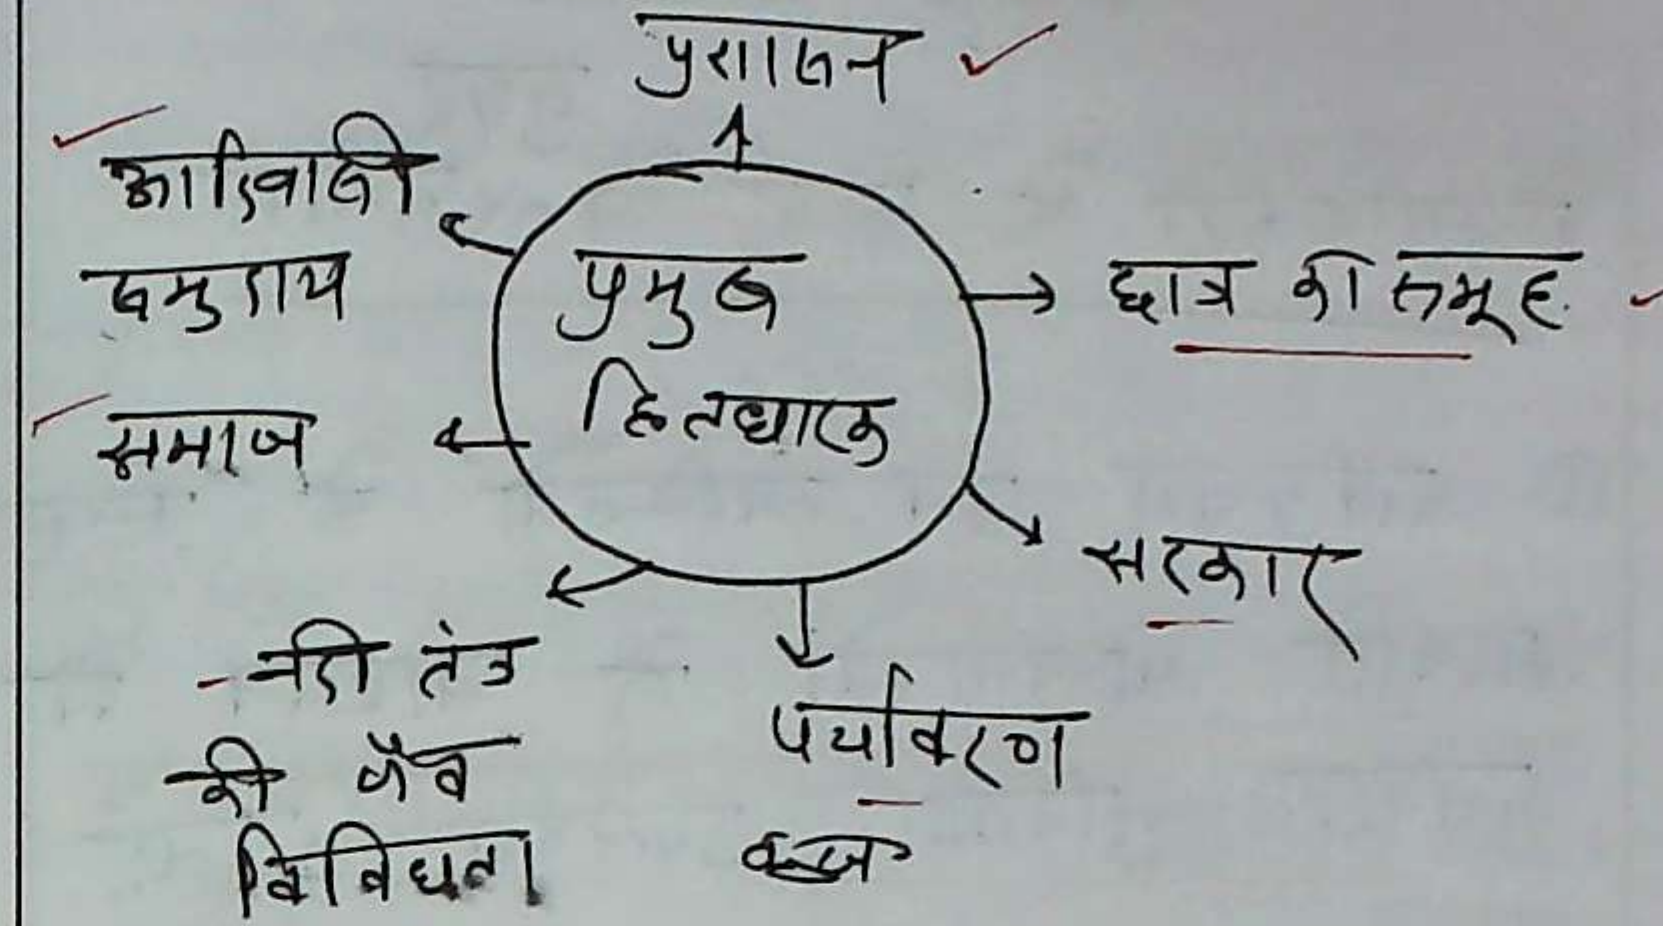 प्रशासन
आदिवासी
समुदाय
समाज
प्रमुख
हितधारक
छात्र की समूह
सरकार
नदी तंत्र
की जैव
विविधता
पर्यावरण